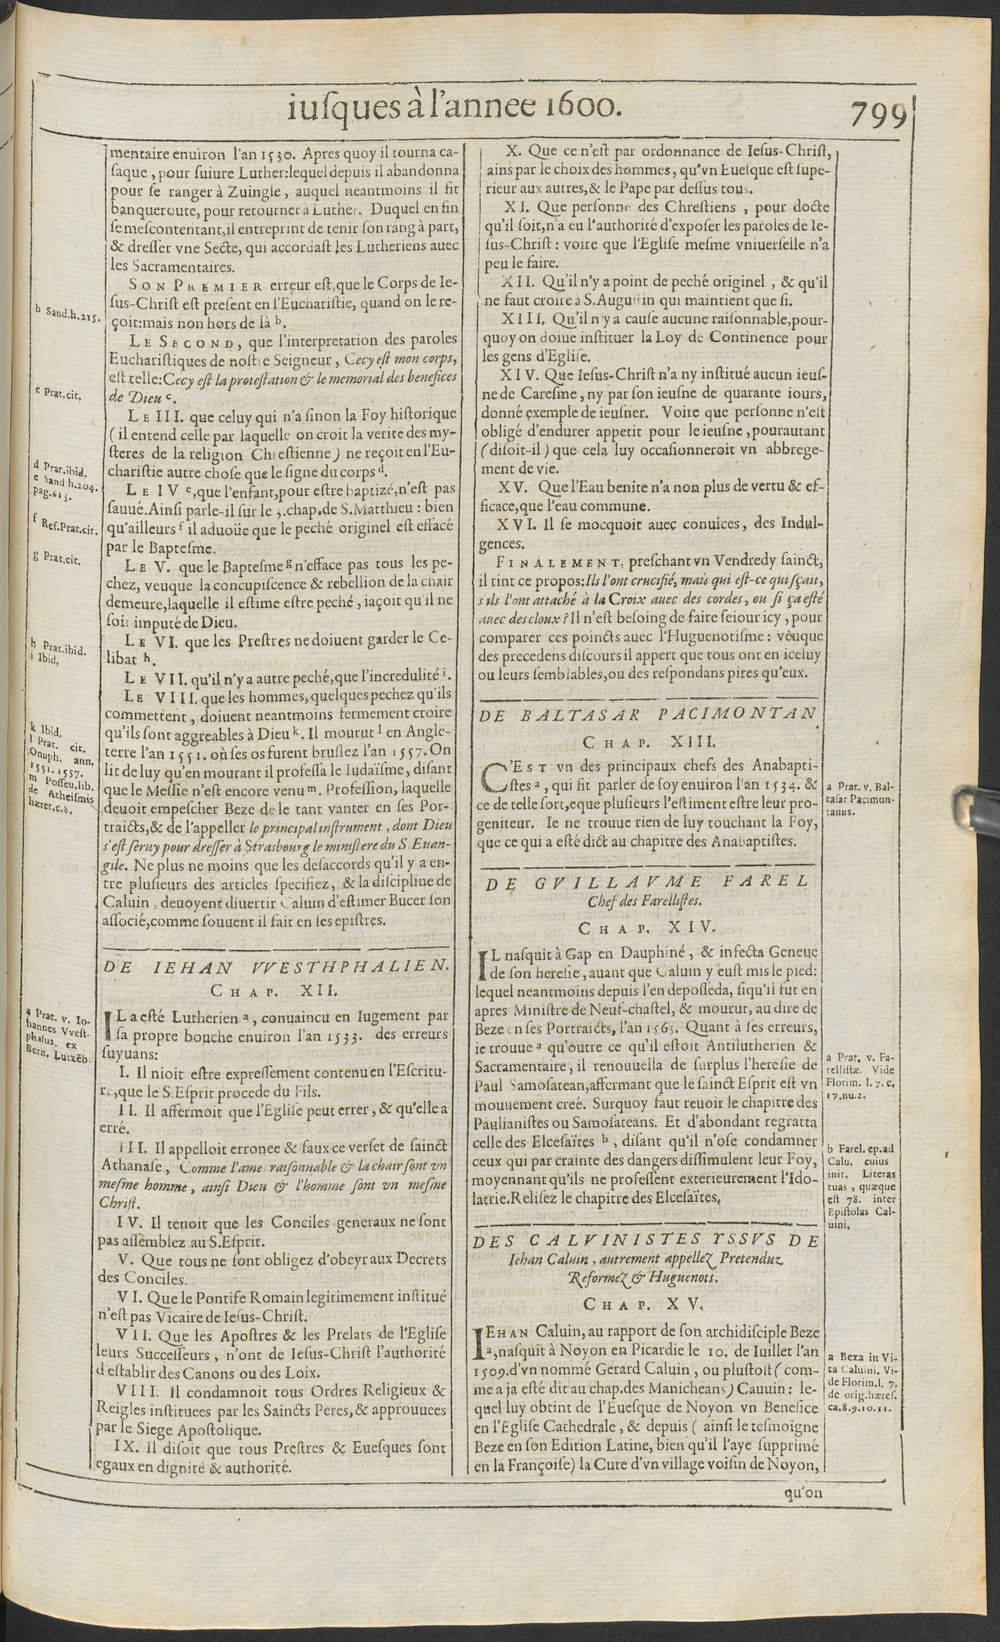 iusques à l'annee 1600.
799
mentaire enuiron l'an 1530. Apres quoy il tourna ca-
saque, pour suiure Luther: lequel depuis il abandonna
pour se ranger à Zuingle, auquel neantmoins il fit
banqueroute, pour retourner à Luther. Duquel en fin
se mescontentant, il entreprint de tenir son rang à part,
& dresser vne Secte, qui accordast les Lutheriens auec
les Sacramentaires.
SON PREMIER erreur est, que le Corps de Ie-
sus-Christ est present en l'Eucharistie, quand on le re-
çoit: mais non hors de là b.
LE SECOND, que l'interpretation des paroles
Eucharistiques de nostre Seigneur, Cecy est mon corps,
est telle: Cecy est la protestation & le memorial des benefices
de Dieu c.
LE III. que celuy qui n'a sinon la Foy historique
(il entend celle par laquelle on croit la verité des my-
steres de la religion Chrestienne) ne reçoit en l'Eu-
charistie autre chose que le signe du corps d.
LE IV e, que l'enfant, pour estre baptizé, n'est pas
sauué. Ainsi parle-il sur le 3. chap. de S. Matthieu : bien
qu'ailleurs f il aduoüe que le peché originel est effacé
par le Baptesme.
LE V. que le Baptesme g n'efface pas tous les pe-
chez, veuque la concupiscence & rebellion de la chair
demeure, laquelle il estime estre peché, iaçoit qu'il ne
soit imputé de Dieu.
LE VI. que les Prestres ne doiuent garder le Ce-
libat h.
LE VII. qu'il n'y a autre peché, que l'incredulité i.
LE VIII. que les hommes, quelques pechez qu'ils
commettent, doiuent neantmoins fermement croire
qu'ils sont aggreables à Dieu k. Il mourut l en Angle-
terre l'an 1551. où ses os furent bruslez l'an 1557. On
lit de luy qu'en mourant il professa le Iudaïsme, disant
que le Messie n'est encore venu m. Profession, laquelle
deuoit empescher Beze de le tant vanter en ses Por-
traicts, & de l'appeller le principal instrument, dont Dieu
s'est seruy pour dresser à Strasbourg le ministere du S. Euan-
gile. Ne plus ne moins que les desaccords qu'il y a en-
tre plusieurs des articles specifiez, & la discipline de
Caluin, deuoyent diuertir Caluin d'estimer Bucer son
associé, comme souuent il fait en ses epistres.
b Sand. h. 215.
c Prat. cit.
d Prat. ibid.
e Sand. h. 204.
pag. 613.
f Ref. Prat. cit.
g Prat. cit.
h Prat. ibid.
i Ibid.
k Ibid.
l Prat. cit.
Onuph. ann.
1551. 1557.
m Posseu. lib.
de Atheismis
hæret. c. 8.
DE IEHAN VVESTHPHALIEN.
CHAP. XII.
IL a esté Lutherien a, conuaincu en Iugement par
sa propre bouche enuiron l'an 1533. des erreurs
suyuans:
I. Il nioit estre expressement contenu en l'Escritu-
re, que le S. Esprit procede du Fils.
II. Il affermoit que l'Eglise peut errer, & qu'elle a
erré.
III. Il appelloit erronee & faux ce verset de sainct
Athanase, Comme l'ame raisonnable & la chair sont vn
mesme homme, ainsi Dieu & l'homme sont vn mesme
Christ.
IV. Il tenoit que les Conciles generaux ne sont
pas assemblez au S. Esprit.
V. Que tous ne sont obligez d'obeyr aux Decrets
des Conciles.
VI. Que le Pontife Romain legitimement institué
n'est pas Vicaire de Iesus-Christ.
VII. Que les Apostres & les Prelats de l'Eglise
leurs Successeurs, n'ont de Iesus-Christ l'authorité
d'establir des Canons ou des Loix.
VIII. Il condamnoit tous Ordres Religieux &
Reigles instituees par les Saincts Peres, & approuuees
par le Siege Apostolique.
IX. Il disoit que tous Prestres & Euesques sont
egaux en dignité & authorité.
a Prat. v. Io-
hannes Vvest-
phalus. ex
Bern. Lutzēb.
X. Que ce n'est par ordonnance de Iesus-Christ,
ains par le choix des hommes, qu'vn Euesque est supe-
rieur aux autres, & le Pape par dessus tous.
XI. Que personne des Chrestiens, pour docte
qu'il soit, n'a eu l'authorité d'exposer les paroles de Ie-
sus-Christ : voire que l'Eglise mesme vniuerselle n'a
peu le faire.
XII. Qu'il n'y a point de peché originel, & qu'il
ne faut croire à S. Augustin qui maintient que si.
XIII. Qu'il n'y a cause aucune raisonnable, pour-
quoy on doiue instituer la Loy de Continence pour
les gens d'Eglise.
XIV. Que Iesus-Christ n'a ny institué aucun ieus-
ne de Caresme, ny par son ieusne de quarante iours,
donné exemple de ieusner. Voire que personne n'est
obligé d'endurer appetit pour le ieusne, pourautant
(disoit-il) que cela luy occasionneroit vn abbrege-
ment de vie.
XV. Que l'Eau benite n'a non plus de vertu & ef-
ficace, que l'eau commune.
XVI. Il se mocquoit auec conuices, des Indul-
gences.
FINALEMENT, preschant vn Vendredy sainct,
il tint ce propos: Ils l'ont crucifié, mais qui est-ce qui sçait,
s'ils l'ont attaché à la Croix auec des cordes, ou si ça esté
auec des cloux? Il n'est besoing de faire seiour icy, pour
comparer ces poincts auec l'Huguenotisme : veuque
des precedens discours il appert que tous ont en iceluy
ou leurs semblables, ou des respondans pires qu'eux.
DE BALTASAR PACIMONTAN
CHAP. XIII.
C'EST vn des principaux chefs des Anabapti-
stes a, qui fit parler de soy enuiron l'an 1534. &
ce de telle sort, eque plusieurs l'estiment estre leur pro-
geniteur. Ie ne trouue rien de luy touchant la Foy,
que ce qui a esté dict au chapitre des Anabaptistes.
a Prat. v. Bal-
tasar Pacimon-
tanus.
DE GVILLAVME FAREL
Chef des Farellistes.
CHAP. XIV.
IL nasquit à Gap en Dauphiné, & infecta Geneue
de son heresie, auant que Caluin y eust mis le pied:
lequel neantmoins depuis l'en deposseda, si qu'il fut en
apres Ministre de Neuf-chastel, & mourut, au dire de
Beze en ses Portraicts, l'an 1565. Quant à ses erreurs,
ie trouue a qu'outre ce qu'il estoit Antilutherien &
Sacramentaire, il renouuella de surplus l'heresie de
Paul Samosatean, affermant que le sainct Esprit est vn
mouuement creé. Surquoy faut reuoir le chapitre des
Paulianistes ou Samosateans. Et d'abondant regratta
celle des Elcesaïtes b, disant qu'il n'ose condamner
ceux qui par crainte des dangers dissimulent leur Foy,
moyennant qu'ils ne professent exterieurement l'Ido-
latrie. Relisez le chapitre des Elcesaïtes.
a Prat. v. Fa-
rellistæ. Vide
Florim. l. 7. c.
17. nu. 2.
b Farel. ep. ad
Calu. cuius
init. Literas
tuas, quæque
est 78. inter
Epistolas Cal-
uini.
DES CALVINISTES YSSVS DE
Iehan Caluin, autrement appellez Pretenduz
Reformez & Huguenots.
CHAP. XV.
IEHAN Caluin, au rapport de son archidisciple Beze
a, nasquit à Noyon en Picardie le 10. de Iuillet l'an
1509. d'vn nommé Gerard Caluin, ou plustost (com-
me a ja esté dit au chap. des Manicheans) Cauuin : le-
quel luy obtint de l'Euesque de Noyon vn Benefice
en l'Eglise Cathedrale, & depuis (ainsi le tesmoigne
Beze en son Edition Latine, bien qu'il l'aye supprimé
en la Françoise) la Cure d'vn village voisin de Noyon,
a Beza in Vi-
ta Caluini. Vi-
de Florim. l. 7.
de orig. hæres.
ca. 8. 9. 10. 11.
qu'on